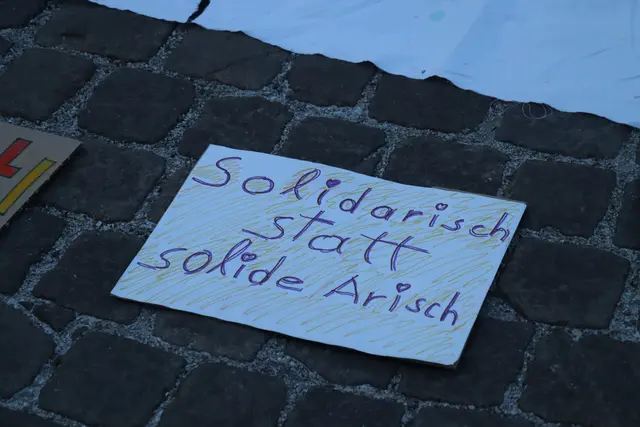 Solidarisch
statt
solide Arisch